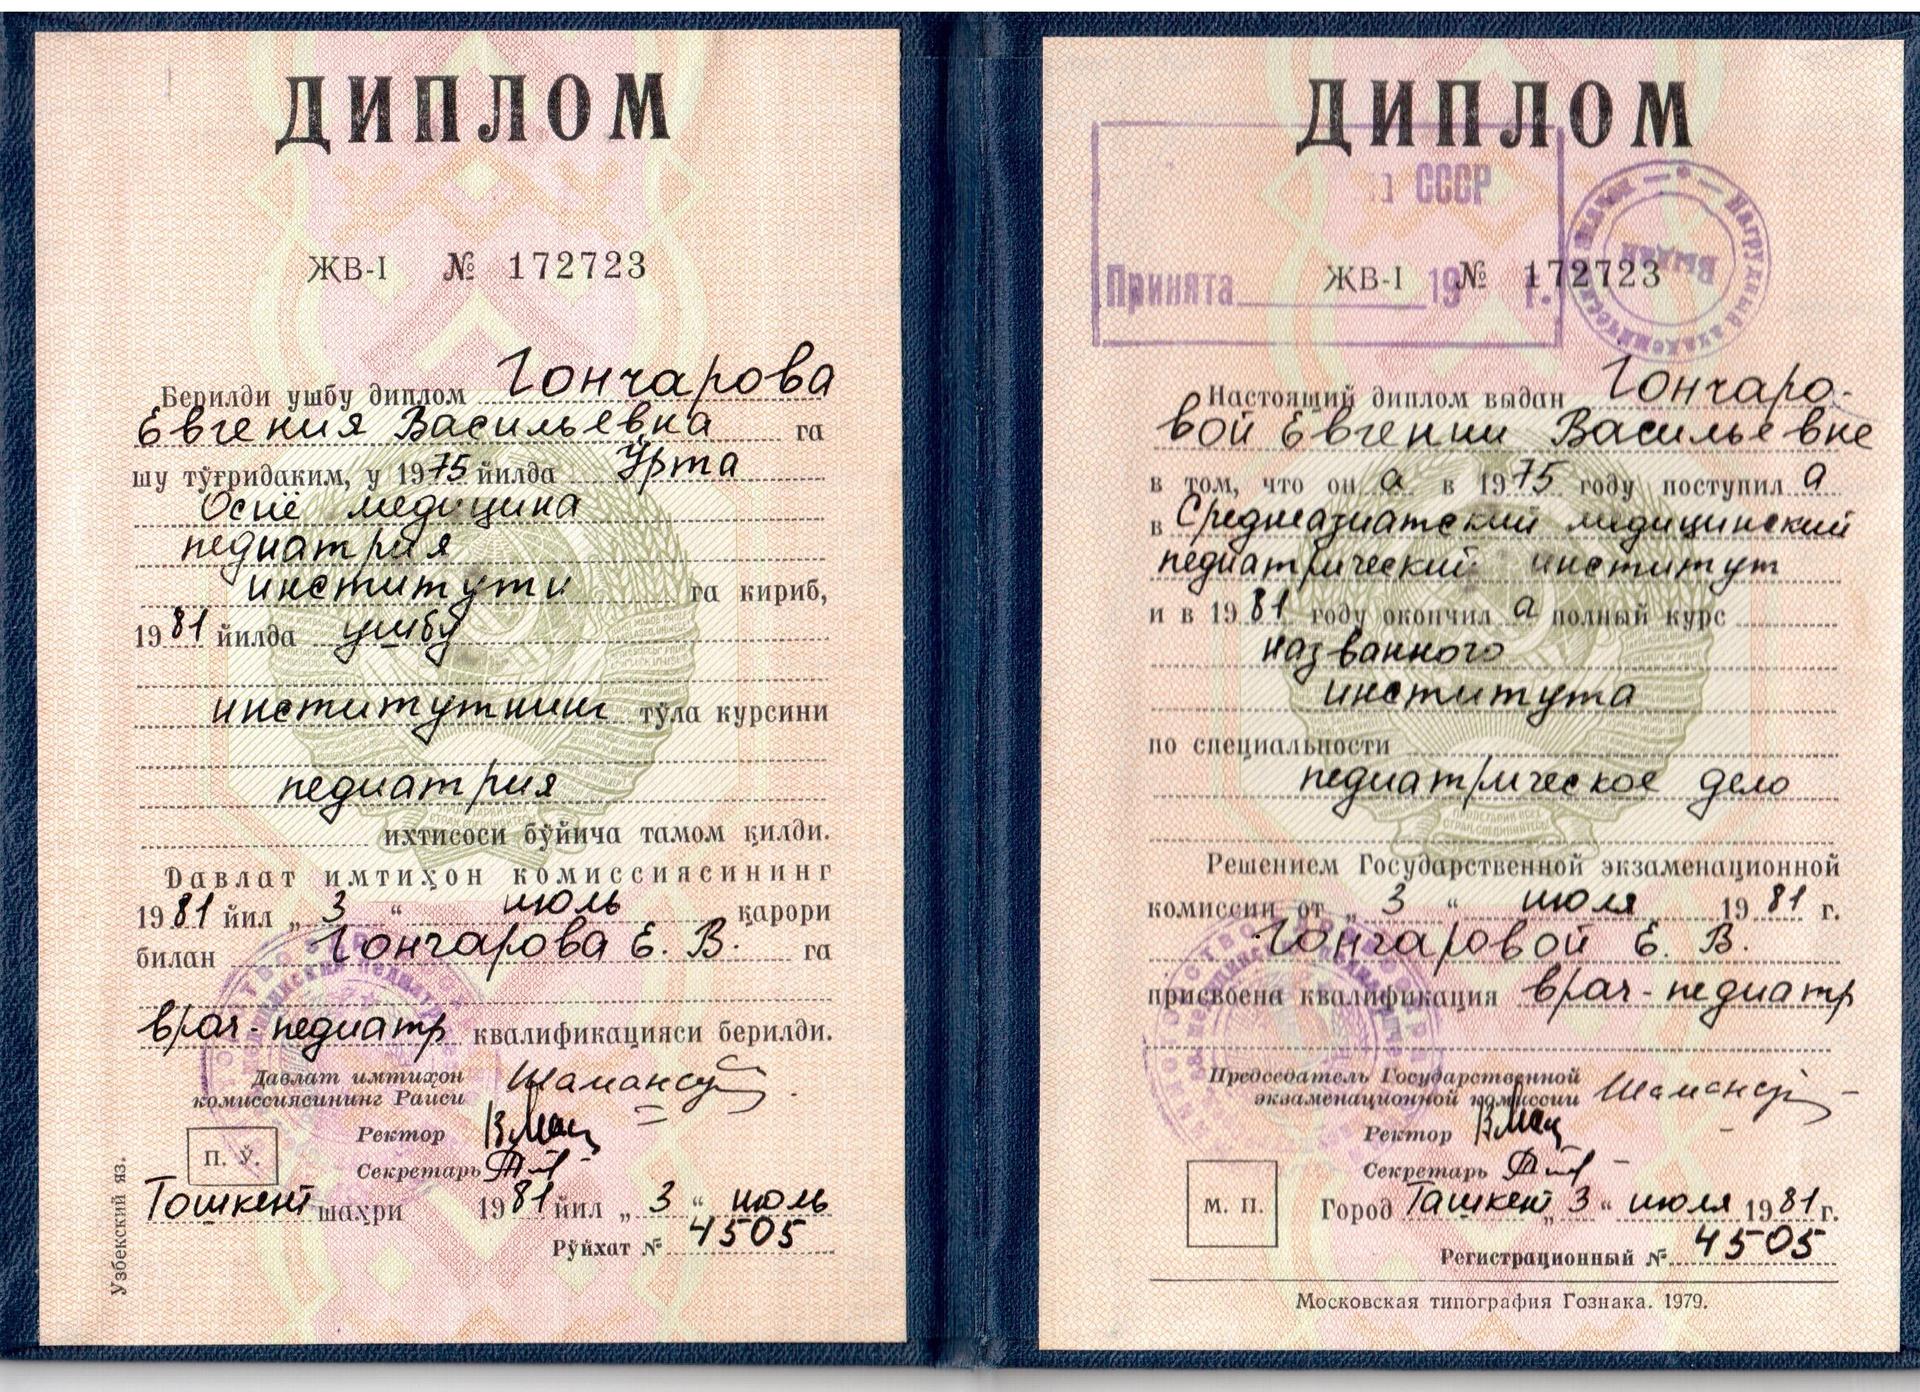 ДИПЛОМ
ЖВ-I № 172723
Берилди ушбу диплом Гончарова
Евгения Васильевна га
шу тўғридаким, у 1975 йилда Ўрта
Осиё медицина
педиатрия
институти га кириб,
1981 йилда ушбу
институтнинг тўла курсини
педиатрия
ихтисоси бўйича тамом қилди.
Давлат имтиҳон комиссиясининг
1981 йил „ 3 “ июль қарори
билан Гончарова Е. В. га
врач-педиатр квалификацияси берилди.
Давлат имтиҳон
комиссиясининг Раиси
Ректор
П. Ў.
Секретарь
Тошкент шаҳри 1981 йил „ 3 “ июль
Рўйхат № 4505
Узбекский яз.
ДИПЛОМ
СССР
Принята 19 г.
Нагрудный академический значок
Выдан
ЖВ-I № 172723
Настоящий диплом выдан Гончаро-
вой Евгении Васильевне
в том, что он а в 1975 году поступил а
в Среднеазиатский медицинский
педиатрический институт
и в 1981 году окончил а полный курс
названного
института
по специальности
педиатрическое дело
Решением Государственной экзаменационной
комиссии от „ 3 “ июля 1981 г.
Гончаровой Е. В.
присвоена квалификация врач-педиатр
Председатель Государственной
экзаменационной комиссии
Ректор
Секретарь
М. П.
Город Ташкент „ 3 “ июля 1981 г.
Регистрационный № 4505
Московская типография Гознака. 1979.